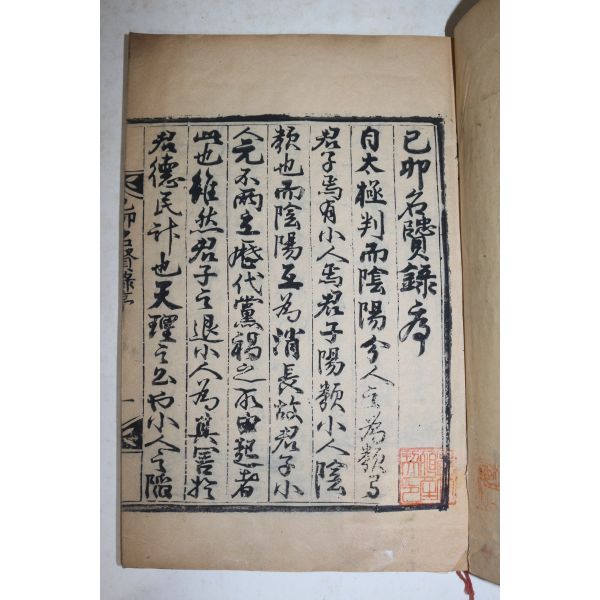 己卯名賢錄序
自太極判而陰陽分人之為類有
君子焉有小人焉君子陽類小人陰
類也而陰陽互為消長故君子小
人元不兩立歷代黨禍之所由起者
此也雖然君子之退小人為其害於
君德民計也天理之公也小人之陷
己卯名賢錄序 一